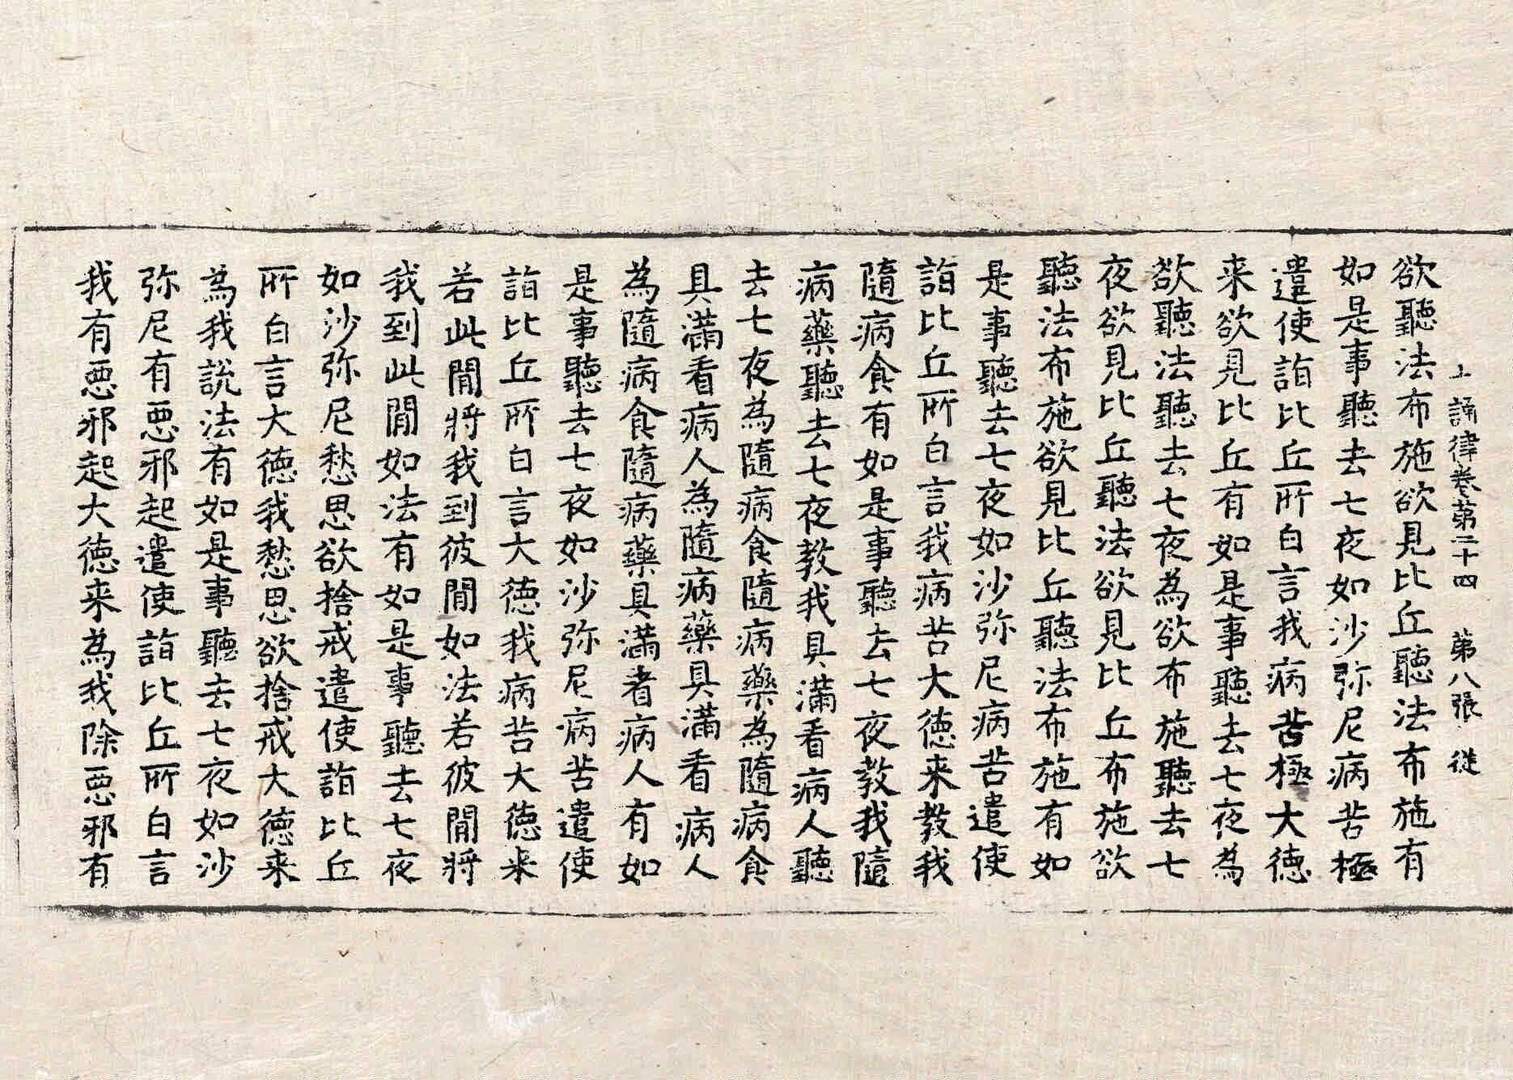 十誦律卷第二十四 第八張 從
欲聽法布施欲見比丘聽法布施有
如是事聽去七夜如沙弥尼病苦極
遣使詣比丘所白言我病苦極大德
来欲見比丘有如是事聽去七夜為
欲聽法聽去七夜為欲布施聽去七
夜欲見比丘聽法欲見比丘布施欲
聽法布施欲見比丘聽法布施有如
是事聽去七夜如沙弥尼病苦遣使
詣比丘所白言我病苦大德来教我
隨病食有如是事聽去七夜教我隨
病藥聽去七夜教我具滿看病人聽
去七夜為隨病食隨病藥為隨病食
具滿看病人為隨病藥具滿看病人
為隨病食隨病藥具滿者病人有如
是事聽去七夜如沙弥尼病苦遣使
詣比丘所白言大德我病苦大德来
若此閒將我到彼閒如法若彼閒將
我到此閒如法有如是事聽去七夜
如沙弥尼愁思欲捨戒遣使詣比丘
所白言大德我愁思欲捨戒大德来
為我說法有如是事聽去七夜如沙
弥尼有悪邪起遣使詣比丘所白言
我有悪邪起大德来為我除悪邪有